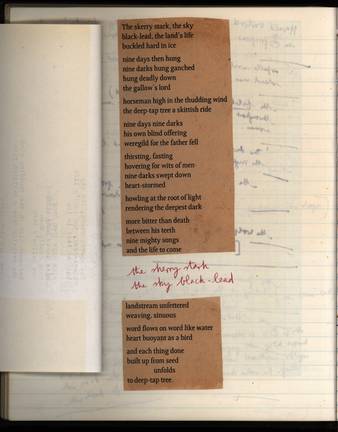 The skerry stark, the sky
black-lead, the land's life
buckled hard in ice
nine days then hung
nine darks hung ganched
hung deadly down
the gallow's lord
horseman high in the thudding wind
the deep-tap tree a skittish ride
nine days nine darks
his own blind offering
weregild for the father fell
thirsting, fasting
hovering for wits of men
nine darks swept down
heart-stormed
howling at the root of light
rendering the deepest dark
more bitter than death
between his teeth
nine mighty songs
and the life to come
the skerry stark
the sky black-lead
landstream unfettered
weaving, sinuous
word flows on word like water
heart buoyant as a bird
and each thing done
built up from seed
unfolds
to deep-tap tree.